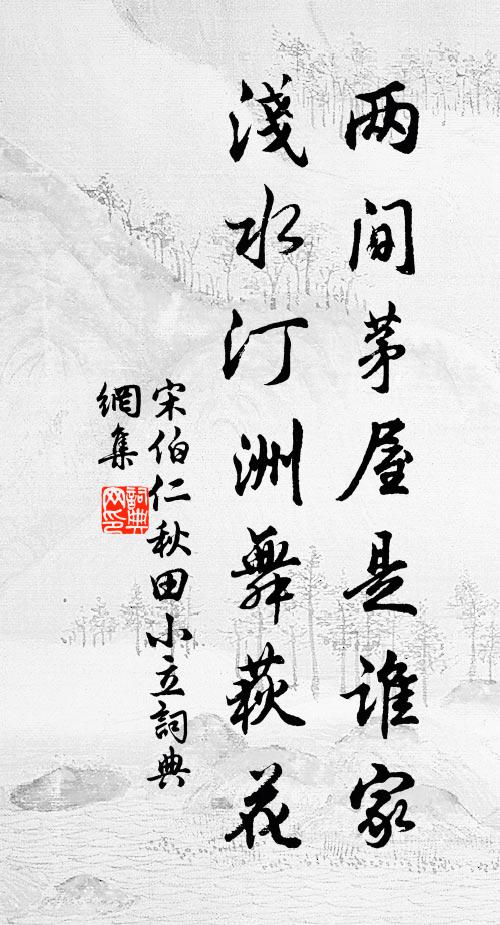 两间茅屋是谁家
淺水汀洲舞荻花
宋伯仁秋田小立詞典
網集
詞典
网印